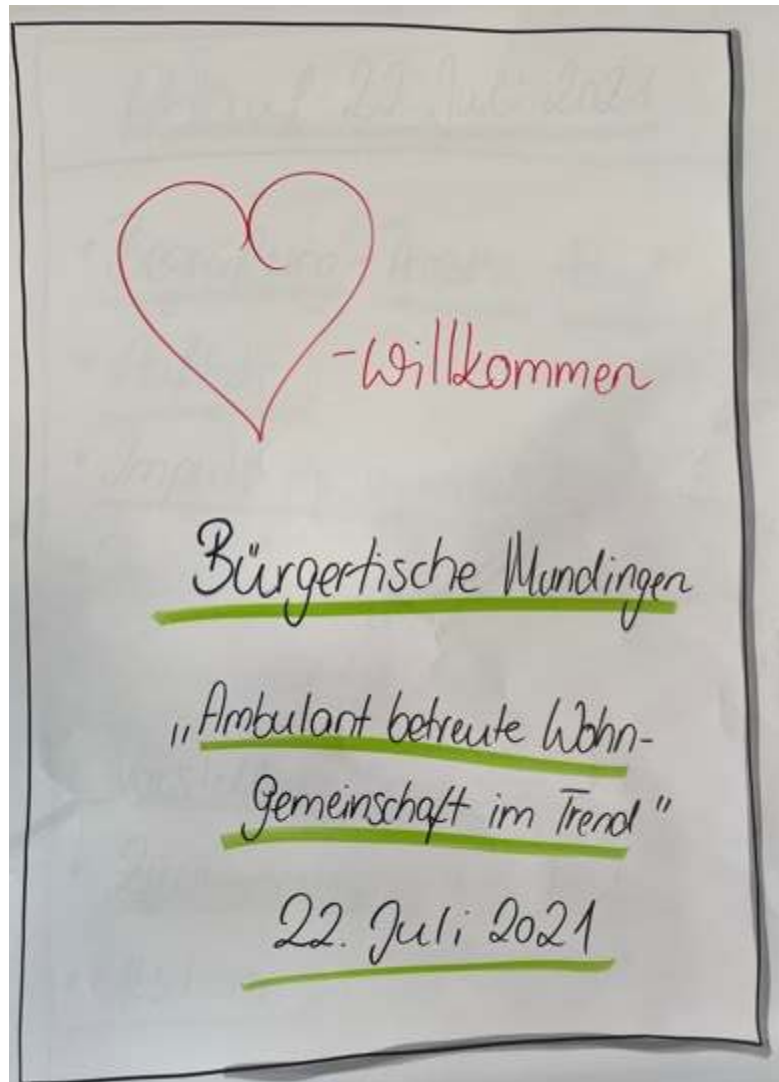 -Willkommen
Bürgertische Mundingen
„Ambulant betreute Wohn-
gemeinschaft im Trend"
22. Juli 2021